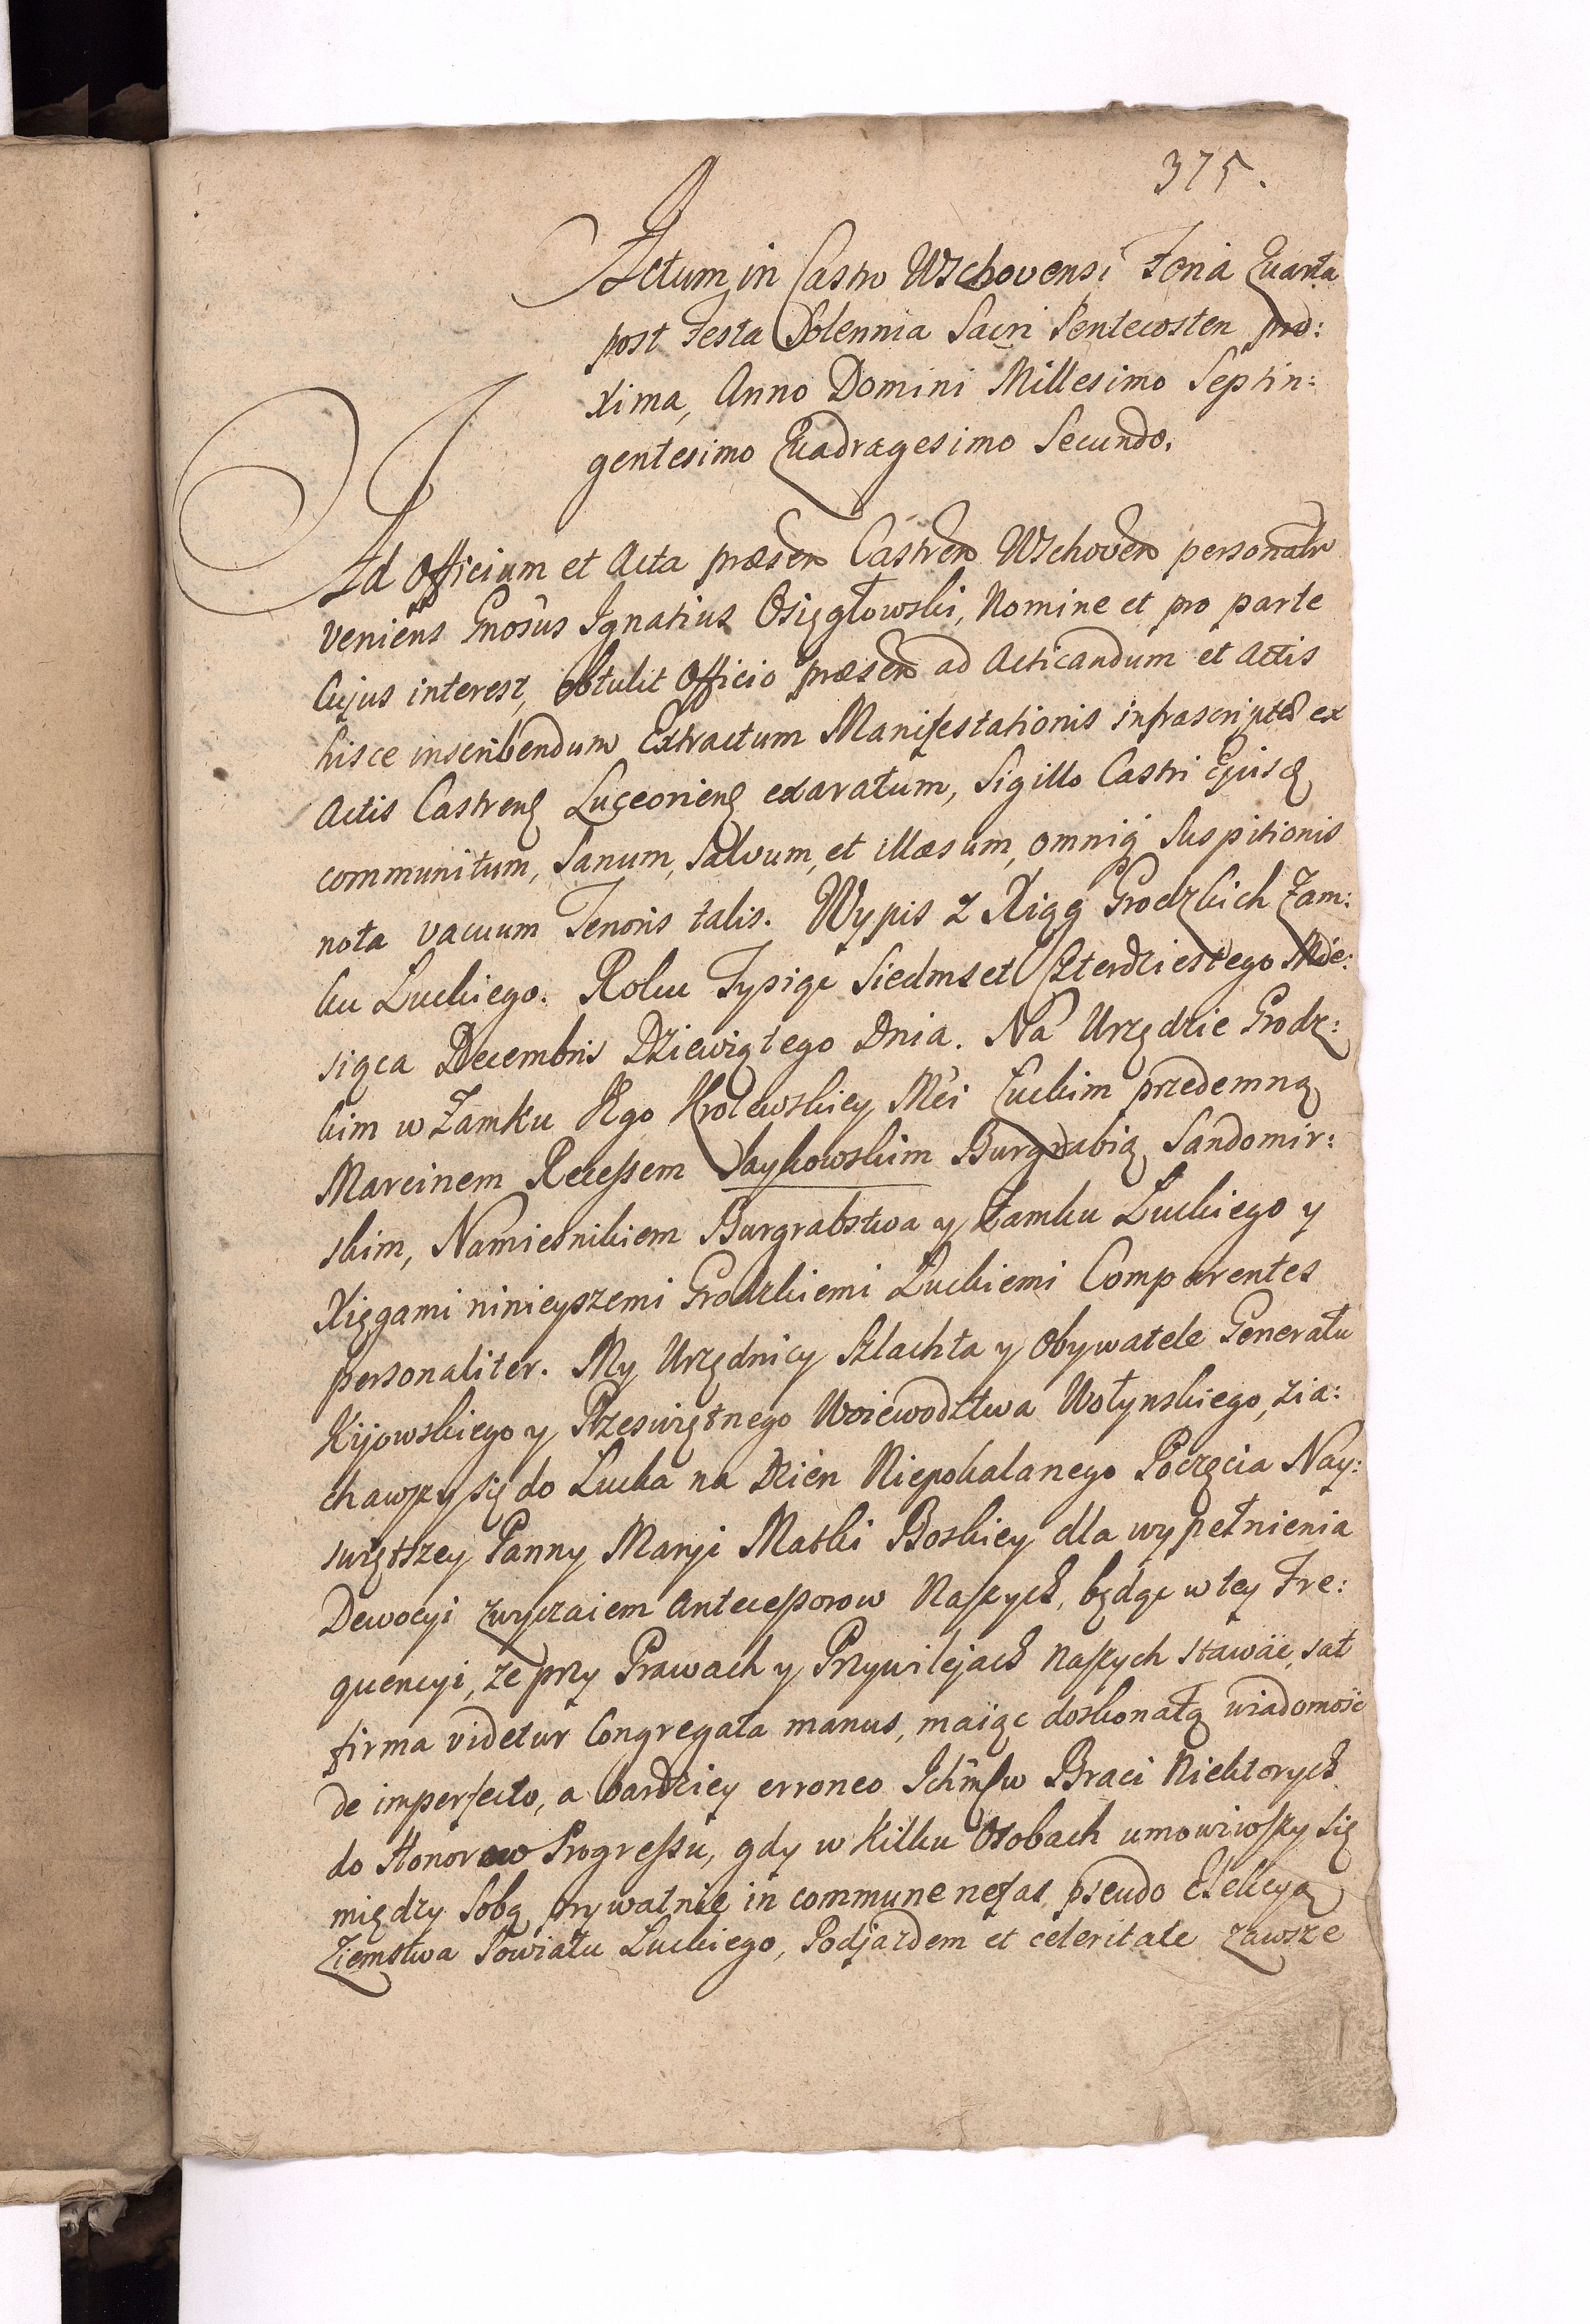 375.
Actum in Castro Wschovensi Feria Quarta
post Festa Solennia Sacri Pentecosten pro:
xima, Anno Domini Millesimo Septin:
gentesimo Quadragesimo Secundo.
Ad Officium et Acta præsen Castren Wschoven personalr
veniens Gnosus Ignatius Osięgłowski, Nomine et pro parte
Cujus interest, obtulit Officio præsen ad Acticandum et Actis
hisce inscribendum Extractum Manifestationis infrascriptæ ex
Actis Castrens Luceoriens exaratum, Sigillo Castri Ejusd
communitum, Sanum, Salvum, et illæsum, omniq Suspitionis
nota vacuum Tenoris talis. Wypis z Xiąg Grodzkich Zam:
ku Luckiego. Roku Tysiąc Siedmset Czterdziestego Mie:
siąca Decembris Dziewiątego Dnia. Na Urzędzie Grodz:
kim w Zamku JKgo Krolewskiey Mći Luckim przedemną
Marcinem Recessem Saykowskim Burgrabią Sandomir:
skim, Namiesnikiem Burgrabstwa y Zamku Luckiego y
Xięgami ninieyszemi Grodzkiemi Luckiemi Comparentes
personaliter. My Urzędnicy Szlachta y Obywatele Generału
Kijowskiego y Przeswiętnego Woiewodztwa Wołynskiego, zia:
chawszy się do Lucka na Dzień Niepokalanego Poczęcia Nay:
swiętszey Panny Maryi Matki Boskiey dla wypełnienia
Dewocyi zwyczaiem Antecessorow Naszych, będąc w tey Fre:
quencyi, że przy Prawach y Przywilejach naszych stawać, sat
firma videtur Congregata manus, maiąc doskonałą wiadomość
de imperfecto, a bardziey erroneo Ichmsw Braci Niektorych
do Honorow Progressu, gdy w Kilku Osobach umowiwszy się
między Sobą prywatnie in commune nefas pseudo Elekcyą
Ziemstwa Powiatu Luckiego, Podjazdem et celeritate zawsze